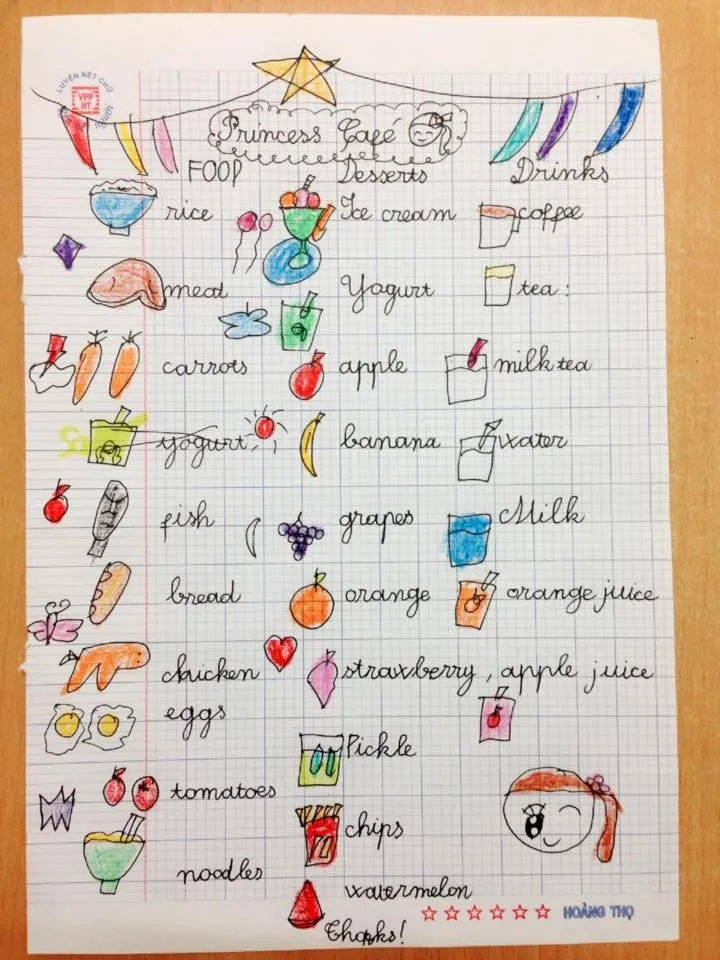 LUYỆN NÉT CHỮ
VPP
HT
Princess Café
FOOD Desserts Drinks
rice Ice cream coffee
meat Yogurt tea:
carrots apple milk tea
yogurt banana water
fish grapes Milk
bread orange orange juice
chicken straxberry, apple juice
eggs
Pickle
tomatoes
chips
noodles
watermelon
HOÀNG THỌ
Thanks!